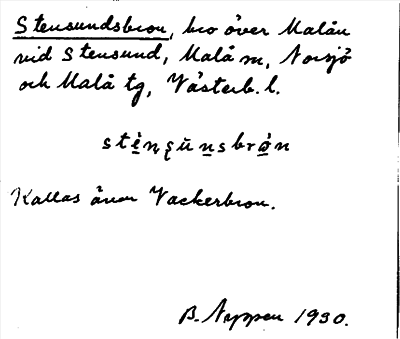 Stensundsbron, bro över Malån
vid Stensund, Malå sn, Norsjö
och Malå tg, Västerb. l.
Kallas även Vackerbron.
B. Nyppen 1930.